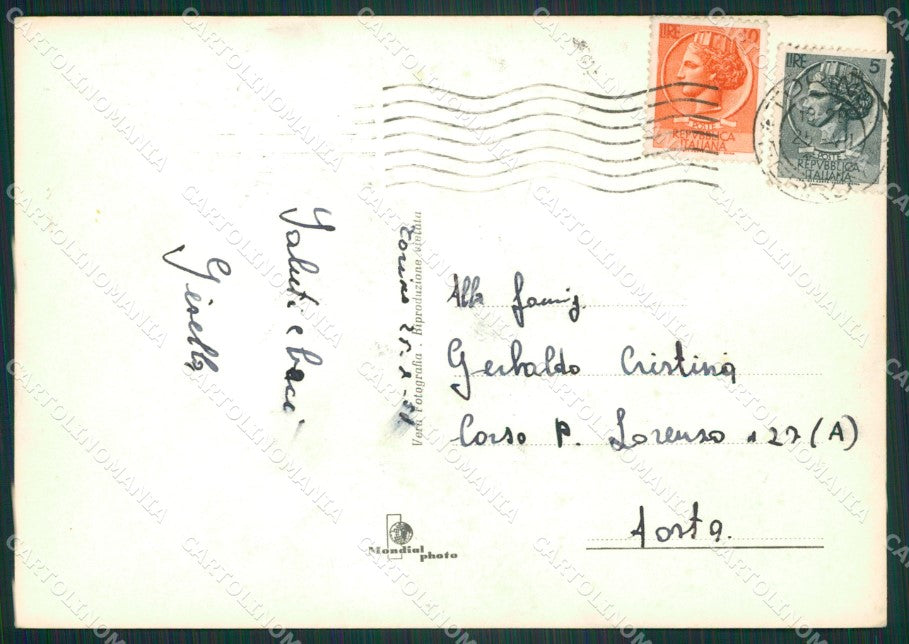 LIRE 10
POSTE
REPVBBLICA
ITALIANA
LIRE 5
POSTE
REPVBBLICA
ITALIANA
Saluti e baci
Gisella
Torino
Vera Fotografia . Riproduzione vietata
Alla famig.
Gerbaldo Cristina
Corso P. Lorenzo n 27 (A)
Aosta.
Mondial
photo
CARTOLINOMANIA